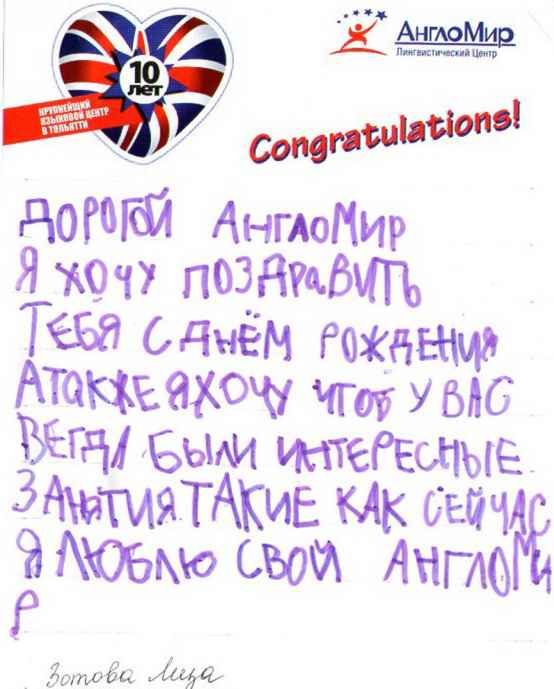 10
ЛЕТ
КРУПНЕЙШИЙ
ЯЗЫКОВОЙ ЦЕНТР
В ТОЛЬЯТТИ
АнглоМир
Лингвистический Центр
Congratulations!
ДОРОГОЙ АНГЛОМИР
Я ХОЧУ ПОЗДРАВИТЬ
ТЕБЯ С ДНЁМ РОЖДЕНИЯ
А ТАКЖЕ Я ХОЧУ ЧТОБ У ВАС
ВЕГДА БЫЛИ ИНТЕРЕСНЫЕ
ЗАНЯТИЯ ТАКИЕ КАК СЕЙЧАС
Я ЛЮБЛЮ СВОЙ АНГЛОМИ
Р
Зотова Лиза